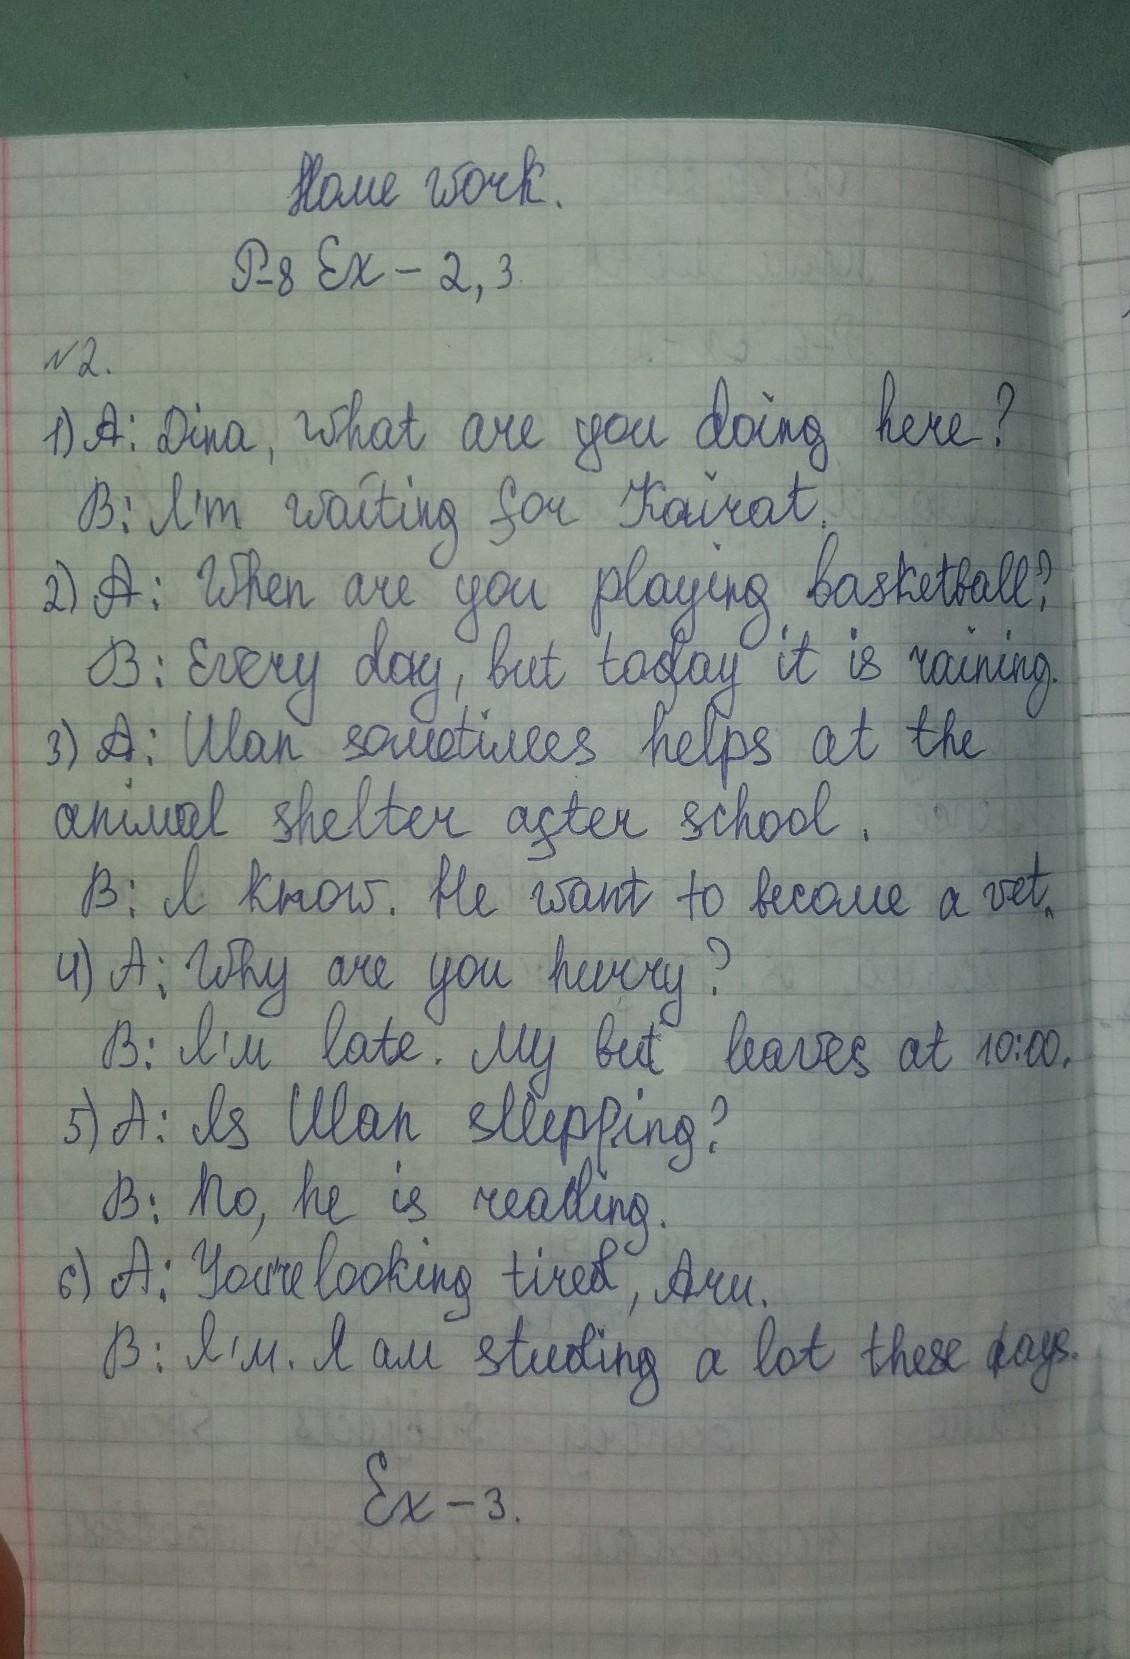 Home Work.
P-8 Ex - 2, 3.
№2.
1) A: Dina, What are you doing here?
B: I'm waiting for Kairat.
2) A: When are you playing basketball?
B: Every day, but today it is raining.
3) A: Ulan sometimes helps at the
animal shelter after school.
B: I know. He want to become a vet.
4) A: Why are you hurry?
B: I'm late. My but leaves at 10:00.
5) A: Is Ulan sleepping?
B: No, he is reading.
6) A: You're looking tired, Aru.
B: I'm. I am studing a lot these days.
Ex - 3.